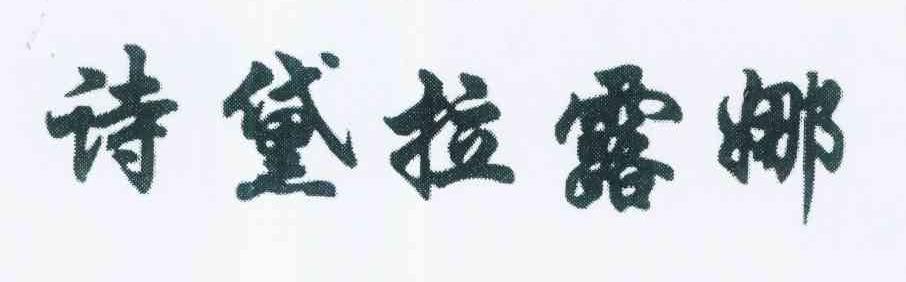 诗黛拉露娜